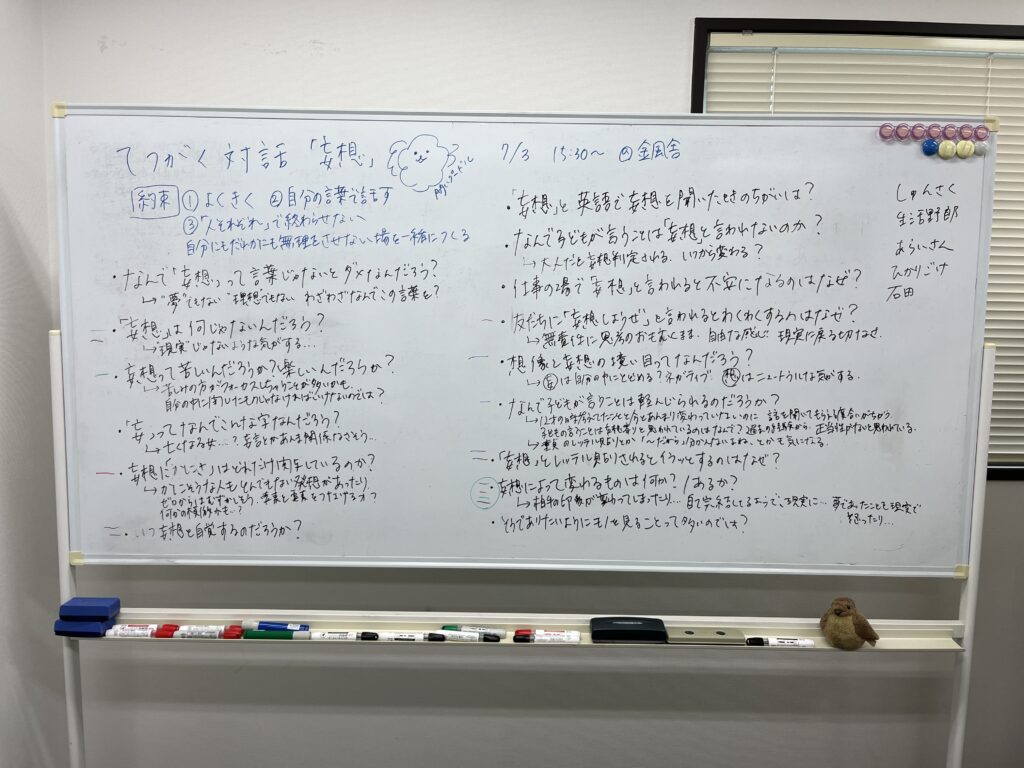 てつがく対話「妄想」
7/3 15:30〜 @金風舎
約束 ①よくきく ②自分の言葉で話す
③「人それぞれ」で終わらせない
自分にもだれかにも無理をさせない場を一緒につくる
・なんで「妄想」って言葉じゃないとダメなんだろう?
↳"夢"でもない "理想"でもない わざわざなんでこの言葉を?
・「妄想」は何じゃないんだろう?
↳"現実"じゃないような気がする…
・妄想って苦しいんだろうか?楽しいんだろうか?
↳苦しみの方がフォーカスしちゃうことが多いかも
自分の中に閉じたものじゃなければいけないのでは?
・「妄」ってなんでこんな字なんだろう?
↳亡くなる女…?妄言とかあるし関係なさそう…
・妄想にかしこさはどれだけ関与しているのか?
↳かしこそうな人もとんでもない発想があったり
ゼロからはむずかしそう 要素と要素をつなげる力?
・いつ妄想と自覚するのだろうか?
・「妄想」と英語で妄想を聞いたときのちがいは?
・なんで子どもが言うことは「妄想」と言われないのか?
↳大人だと妄想判定される、いつから変わる?
・仕事の場で「妄想」と言われると不安になるのはなぜ?
・友だちに「妄想しようぜ」と言われるとわくわくするのはなぜ?
↳無責任に 自由な感じ 現実に戻る切なさ
・想像と妄想の違いってなんだろう?
↳妄は自分の中にとどめる?ネガティブ 想はニュートラルな気がする
・なんで子どもが言うことは軽んじられるのだろうか?
↳12才の時だってしたことと今とあんまり変わっていないのに 話を聞いてもらえる度合いがちがう
子どもの言うことは 思われているのはなんで? 正当性がないと思われている
↳ のレッテルはりとか「〜だから」 ないよね、とかも気になる
・「妄想」とレッテルはりされるとイラッとするのはなぜ?
・妄想によって変わるものは何か?/あるか?
↳相手の印象が変わってしまったり… 自己完結してるようで、現実に… 夢であったことも現実で
怒ったり…
・そうでありたいようにものを見ることって多いのでは?
しゅんさく
生活野郎
あらいさん
ひかりごけ
石田